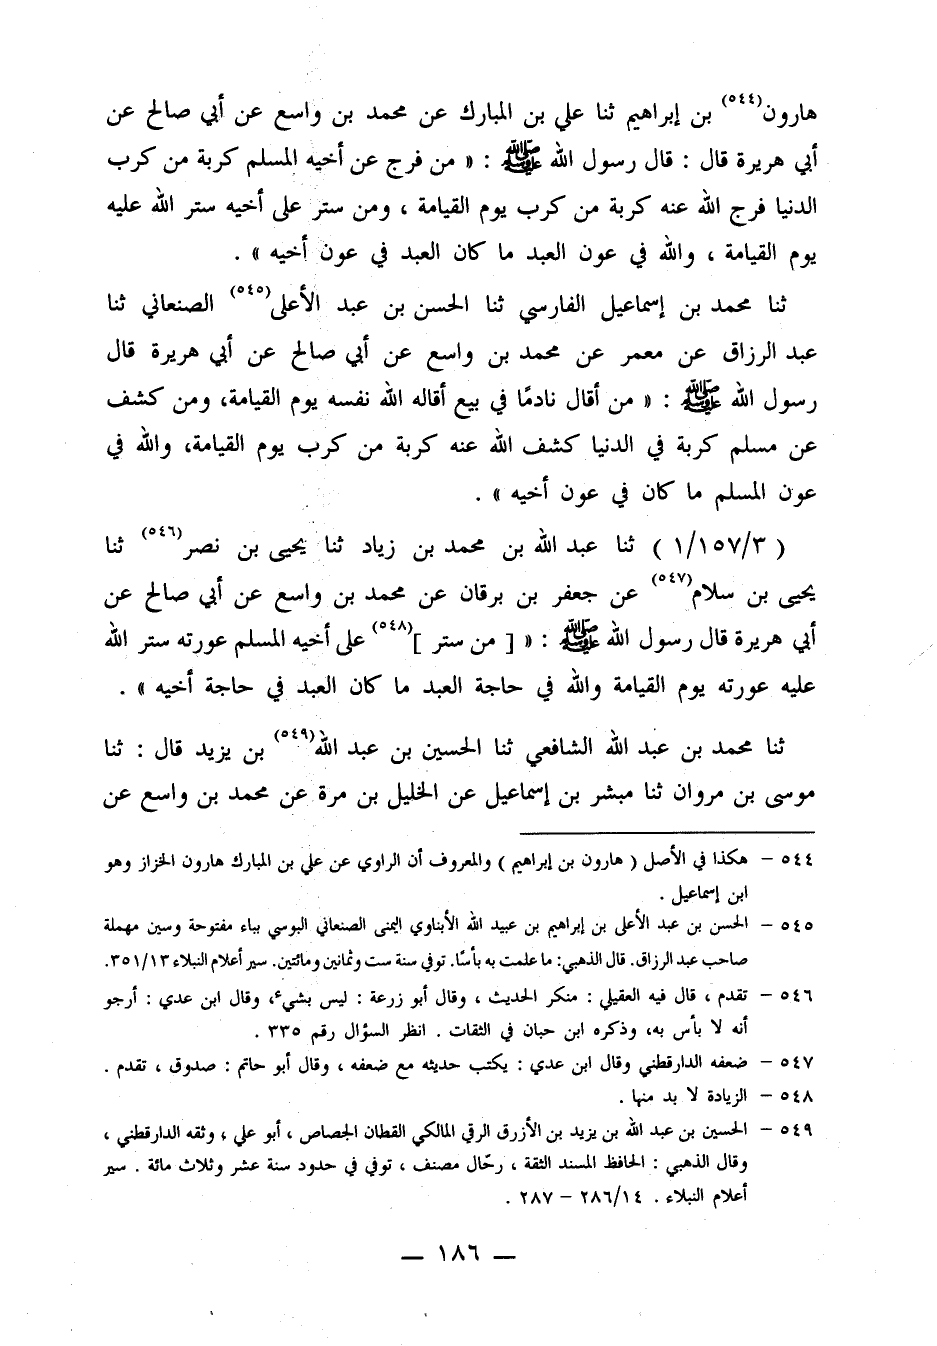 هارون(٥٤٤) بن إبراهيم ثنا علي بن المبارك عن محمد بن واسع عن أبي صالح عن
أبي هريرة قال : قال رسول الله ﷺ : « من فرج عن أخيه المسلم كربة من كرب
الدنيا فرج الله عنه كربة من كرب يوم القيامة ، ومن ستر على أخيه ستر الله عليه
يوم القيامة ، والله في عون العبد ما كان العبد في عون أخيه » .
ثنا محمد بن إسماعيل الفارسي ثنا الحسن بن عبد الأعلى(٥٤٥) الصنعاني ثنا
عبد الرزاق عن معمر عن محمد بن واسع عن أبي صالح عن أبي هريرة قال
رسول الله ﷺ : « من أقال نادمًا في بيع أقاله الله نفسه يوم القيامة، ومن كشف
عن مسلم كربة في الدنيا كشف الله عنه كربة من كرب يوم القيامة، والله في
عون المسلم ما كان في عون أخيه » .
( ١/١٥٧/٣ ) ثنا عبد الله بن محمد بن زياد ثنا يحيى بن نصر(٥٤٦) ثنا
يحيى بن سلام(٥٤٧) عن جعفر بن برقان عن محمد بن واسع عن أبي صالح عن
أبي هريرة قال رسول الله ﷺ : « [ من ستر ](٥٤٨) على أخيه المسلم عورته ستر الله
عليه عورته يوم القيامة والله في حاجة العبد ما كان العبد في حاجة أخيه » .
ثنا محمد بن عبد الله الشافعي ثنا الحسين بن عبد الله(٥٤٩) بن يزيد قال : ثنا
موسى بن مروان ثنا مبشر بن إسماعيل عن الخليل بن مرة عن محمد بن واسع عن
٥٤٤ – هكذا في الأصل ( هارون بن إبراهيم ) والمعروف أن الراوي عن علي بن المبارك هارون الخزاز وهو
ابن إسماعيل .
٥٤٥ – الحسن بن عبد الأعلى بن إبراهيم بن عبيد الله الأبناوي اليمنى الصنعاني البوسي بباء مفتوحة وسين مهملة
صاحب عبد الرزاق. قال الذهبي: ما علمت به بأسًا. توفي سنة ست وثمانين ومائتين. سير أعلام النبلاء ٣٥١/١٣.
٥٤٦ – تقدم ، قال فيه العقيلي : منكر الحديث ، وقال أبو زرعة : ليس بشيء، وقال ابن عدي : أرجو
أنه لا بأس به، وذكره ابن حبان في الثقات . انظر السؤال رقم ٣٣٥ .
٥٤٧ – ضعفه الدارقطني وقال ابن عدي : يكتب حديثه مع ضعفه ، وقال أبو حاتم : صدوق ، تقدم .
٥٤٨ – الزيادة لا بد منها .
٥٤٩ – الحسين بن عبد الله بن يزيد بن الأزرق الرقي المالكي القطان الجصاص ، أبو علي ، وثقه الدارقطني ،
وقال الذهبي : الحافظ المسند الثقة ، رحّال مصنف ، توفي في حدود سنة عشر وثلاث مائة . سير
أعلام النبلاء . ٢٨٦/١٤ – ٢٨٧ .
— ١٨٦ —